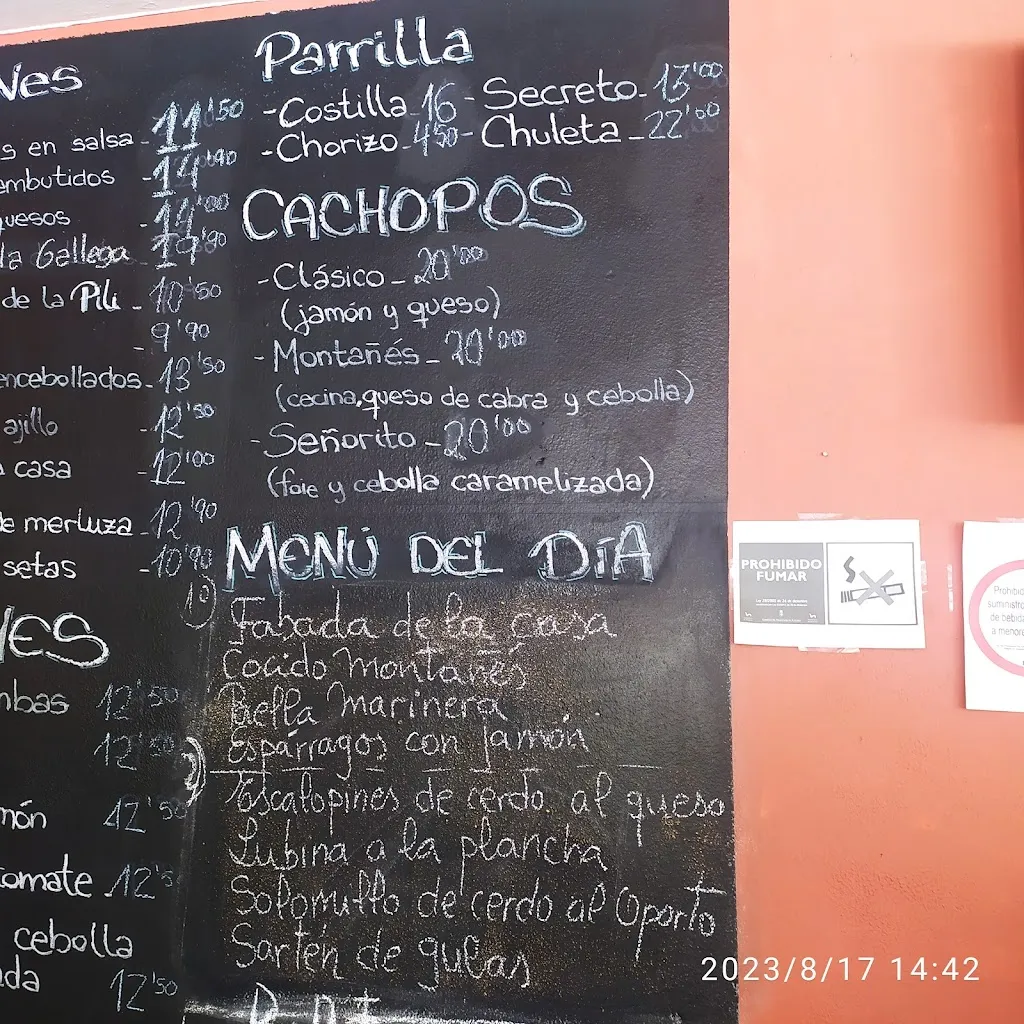 Parrilla
-Costilla 16 - Secreto 13'00
-Chorizo 4'50 - Chuleta 22'00
CACHOPOS
-Clásico 20'00
(jamón y queso)
-Montañés 20'00
(cecina,queso de cabra y cebolla)
-Señorito 20'00
(foie y cebolla caramelizada)
MENÚ DEL DíA
1º) Fabada de la casa
Cocido Montañés
Paella Marinera
Espárragos con jamón
Escalopines de cerdo al queso
Lubina a la plancha
Solomillo de cerdo al Oporto
Sartén de gulas
11'50
s en salsa
embutidos
uesos 14'00
la Gallega 19'90
de la Pili 10'50
9'90
encebollados 13'50
ajillo 12'50
casa 12'00
de merluza 12'90
setas 10'90
mbas 12'50
12'50
món 12'50
tomate 12'5
cebolla
da 12'50
PROHIBIDO
FUMAR
Prohibid
suministro
de bebida
a menore
2023/8/17 14:42